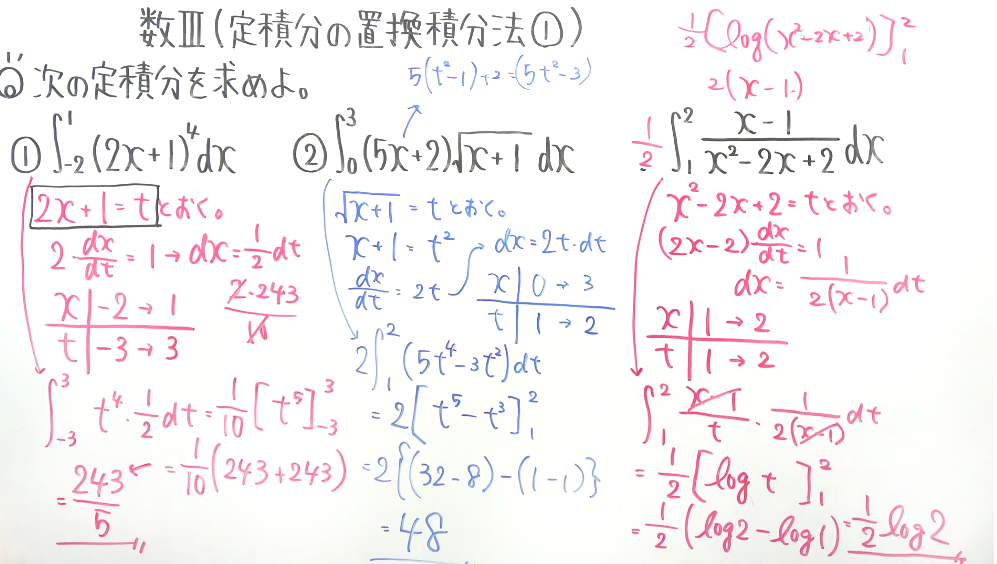 数Ⅲ(定積分の置換積分法①)
次の定積分を求めよ。
① ∫_{-2}^{1} (2x+1)^4 dx
2x+1=tとおく。
2・dx/dt=1→dx=1/2 dt
x | -2→1
t | -3→3
2・243/10
∫_{-3}^{3} t^4・1/2 dt=1/10[t^5]_{-3}^{3}
=1/10(243+243)
=243/5
5(t²-1)+2=(5t²-3)
② ∫_{0}^{3} (5x+2)√(x+1) dx
√(x+1)=tとおく。
x+1=t²
dx/dt=2t
dx=2t・dt
x | 0→3
t | 1→2
2∫_{1}^{2} (5t^4-3t²)dt
=2[t^5-t³]_{1}^{2}
=2{(32-8)-(1-1)}
=48
1/2[log(x²-2x+2)]_{1}^{2}
2(x-1)
1/2 ∫_{1}^{2} (x-1)/(x²-2x+2) dx
x²-2x+2=tとおく。
(2x-2)dx/dt=1
dx=1/(2(x-1)) dt
x | 1→2
t | 1→2
∫_{1}^{2} (x-1)/t・1/(2(x-1)) dt
=1/2[log t]_{1}^{2}
=1/2(log2-log1)=1/2 log2